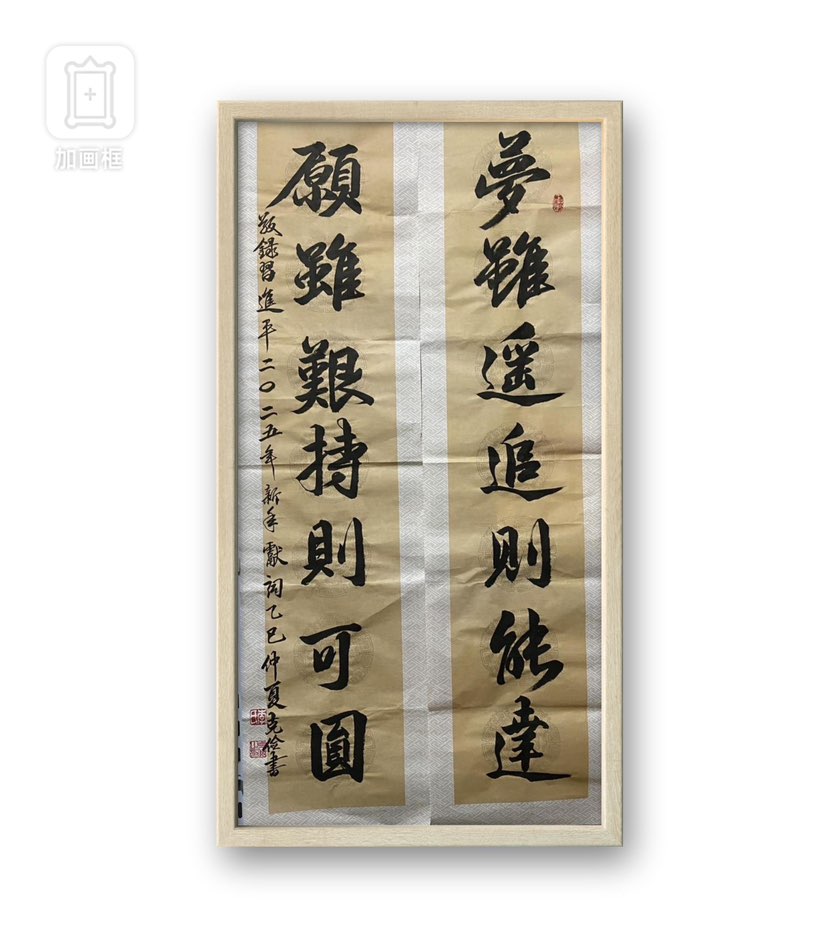 夢雖遥追則能達
願雖艱持則可圓
敬錄習進平二〇二五年新年獻词乙巳仲夏克俭書
加画框